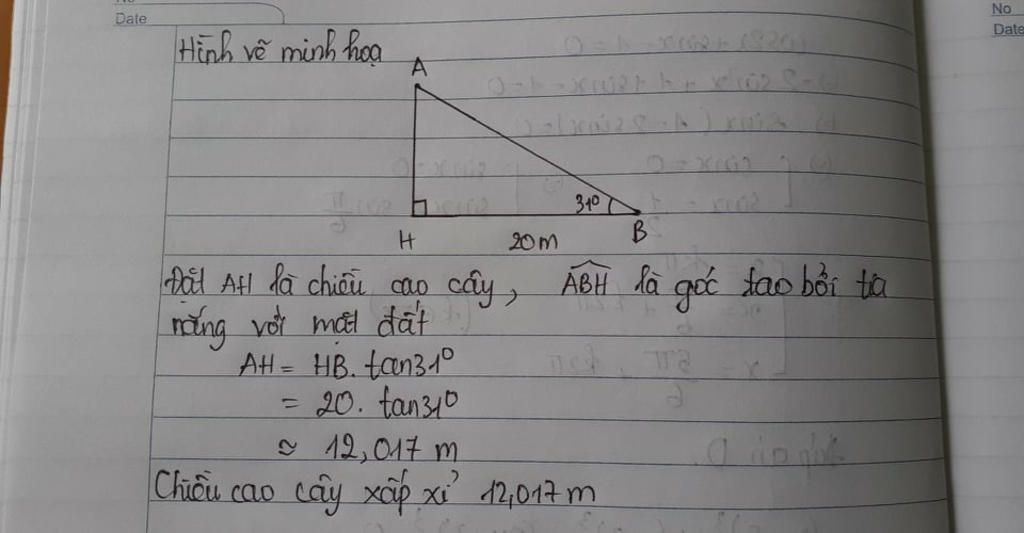 No
Date
No
Date
Hình vẽ minh hoạ
A
31°
H
20m
B
Đặt AH là chiều cao cây, ABH là góc tạo bởi tia
nắng với mặt đất
AH = HB. tan31°
= 20. tan31°
≈ 12,017 m
Chiều cao cây xấp xỉ 12,017 m